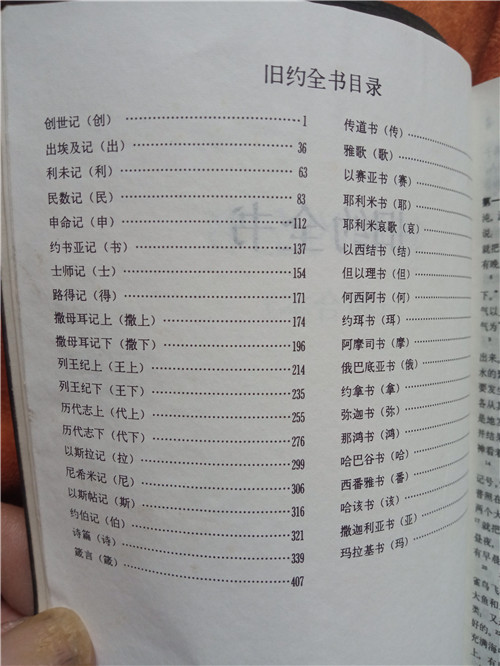 旧约全书目录
创世记（创）⋯⋯1
出埃及记（出）⋯⋯36
利未记（利）⋯⋯63
民数记（民）⋯⋯83
申命记（申）⋯⋯112
约书亚记（书）⋯⋯137
士师记（士）⋯⋯154
路得记（得）⋯⋯171
撒母耳记上（撒上）⋯⋯174
撒母耳记下（撒下）⋯⋯196
列王纪上（王上）⋯⋯214
列王纪下（王下）⋯⋯235
历代志上（代上）⋯⋯255
历代志下（代下）⋯⋯276
以斯拉记（拉）⋯⋯299
尼希米记（尼）⋯⋯306
以斯帖记（斯）⋯⋯316
约伯记（伯）⋯⋯321
诗篇（诗）⋯⋯339
箴言（箴）⋯⋯407
传道书（传）⋯⋯
雅歌（歌）⋯⋯
以赛亚书（赛）⋯⋯
耶利米书（耶）⋯⋯
耶利米哀歌（哀）
以西结书（结）⋯⋯
但以理书（但）⋯⋯
何西阿书（何）⋯⋯
约珥书（珥）⋯⋯
阿摩司书（摩）⋯⋯
俄巴底亚书（俄）⋯⋯
约拿书（拿）⋯⋯
弥迦书（弥）⋯⋯
那鸿书（鸿）⋯⋯
哈巴谷书（哈）⋯⋯
西番雅书（番）⋯⋯
哈该书（该）⋯⋯
撒迦利亚书（亚）
玛拉基书（玛）⋯⋯
第一
沌，
说：
就把
有晚
下。”
气以
气为
出来，
水的
要发生
各从其
是地
所结
神看着
记号，
普照
两个大
就把
昼夜，
有早晨
雀鸟飞
大鱼和
类；又
好的。
充满海
上。